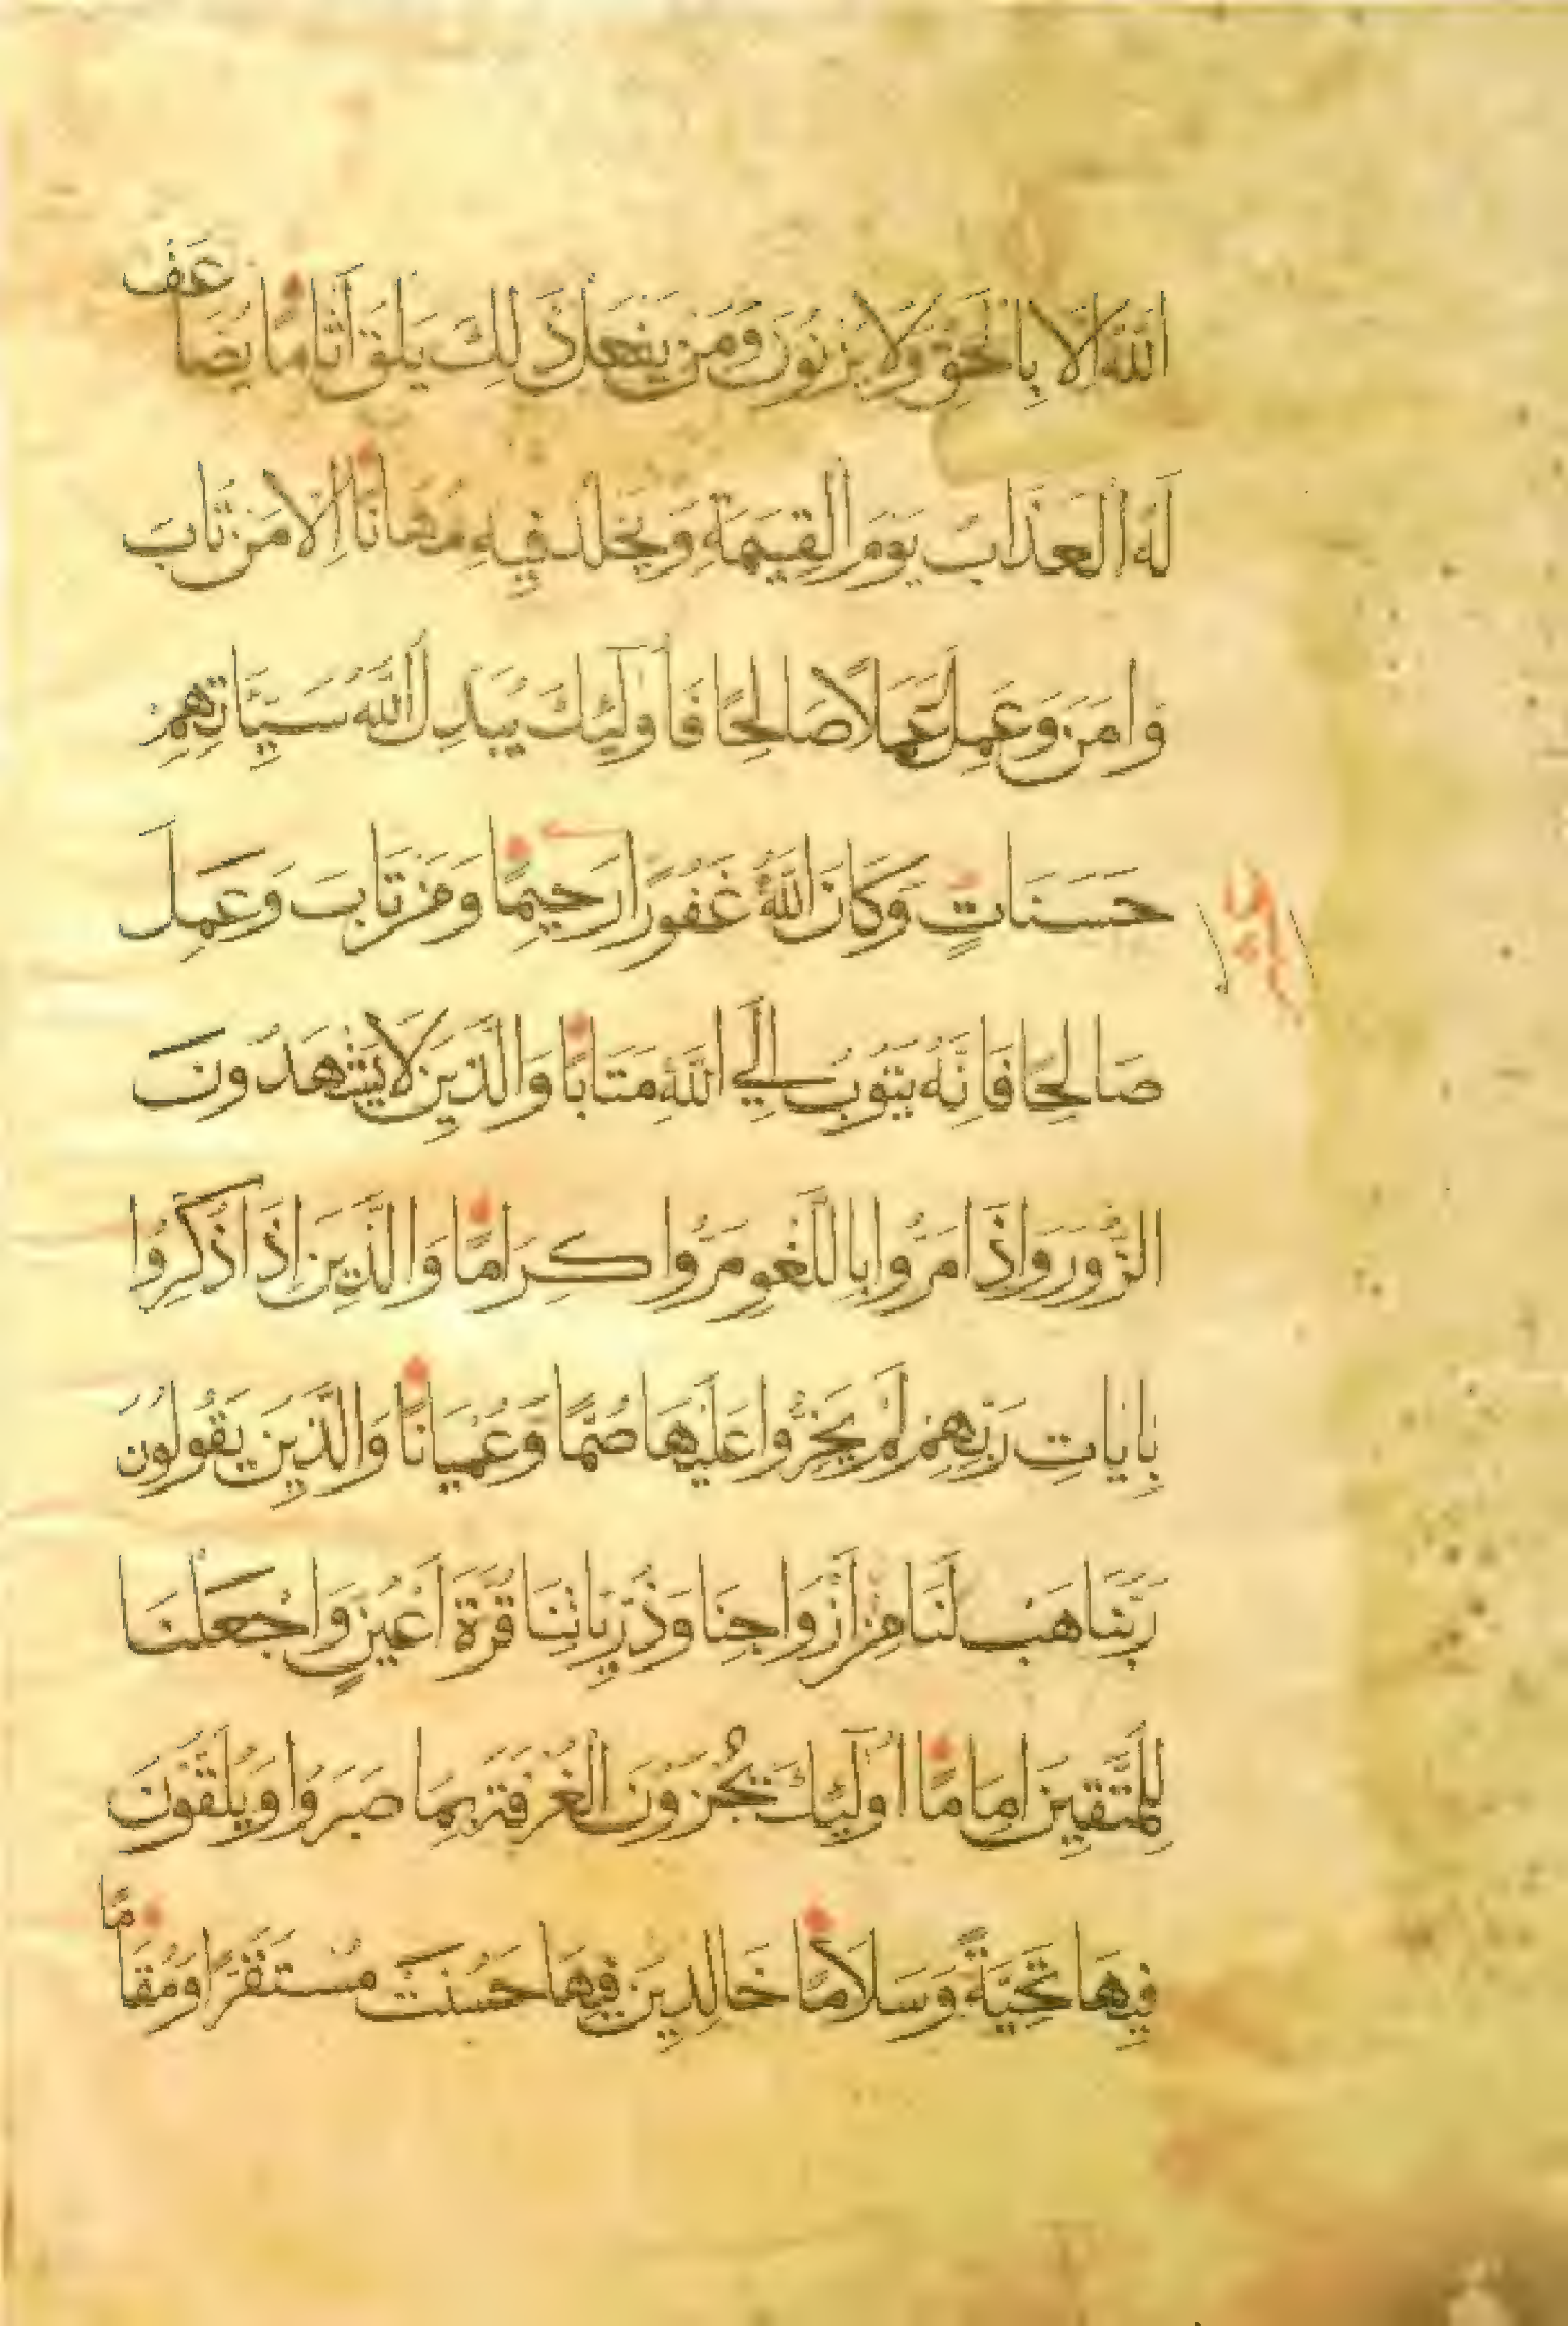 اللَّهُ إِلَّا بِالْحَقِّ وَلَا يَزْنُونَ وَمَنْ يَفْعَلْ ذَلِكَ يَلْقَ أَثَامًا يُضَاعَفْ
لَهُ الْعَذَابُ يَوْمَ الْقِيمَةِ وَيَخْلُدْ فِيهِ مُهَانًا إِلَّا مَنْ تَابَ
وَامَنَ وَعَمِلَ عَمَلًا صَالِحًا فَأُولَئِكَ يُبَدِّلُ اللَّهُ سَيِّئَاتِهِمْ
حَسَنَاتٍ وَكَانَ اللَّهُ غَفُورًا رَحِيمًا وَمَنْ تَابَ وَعَمِلَ
صَالِحًا فَإِنَّهُ يَتُوبُ إِلَى اللَّهِ مَتَابًا وَالَّذِينَ لَا يَشْهَدُونَ
الزُّورَ وَإِذَا مَرُّوا بِاللَّغْوِ مَرُّوا كِرَامًا وَالَّذِينَ إِذَا ذُكِّرُوا
بِايَاتِ رَبِّهِمْ لَمْ يَخِرُّوا عَلَيْهَا صُمًّا وَعُمْيَانًا وَالَّذِينَ يَقُولُونَ
رَبَّنَا هَبْ لَنَا مِنْ أَزْوَاجِنَا وَذُرِّيَّاتِنَا قُرَّةَ أَعْيُنٍ وَاجْعَلْنَا
لِلْمُتَّقِينَ إِمَامًا أُولَئِكَ يُجْزَوْنَ الْغُرْفَةَ بِمَا صَبَرُوا وَيُلَقَّوْنَ
فِيهَا تَحِيَّةً وَسَلَامًا خَالِدِينَ فِيهَا حَسُنَتْ مُسْتَقَرًّا وَمُقَامًا